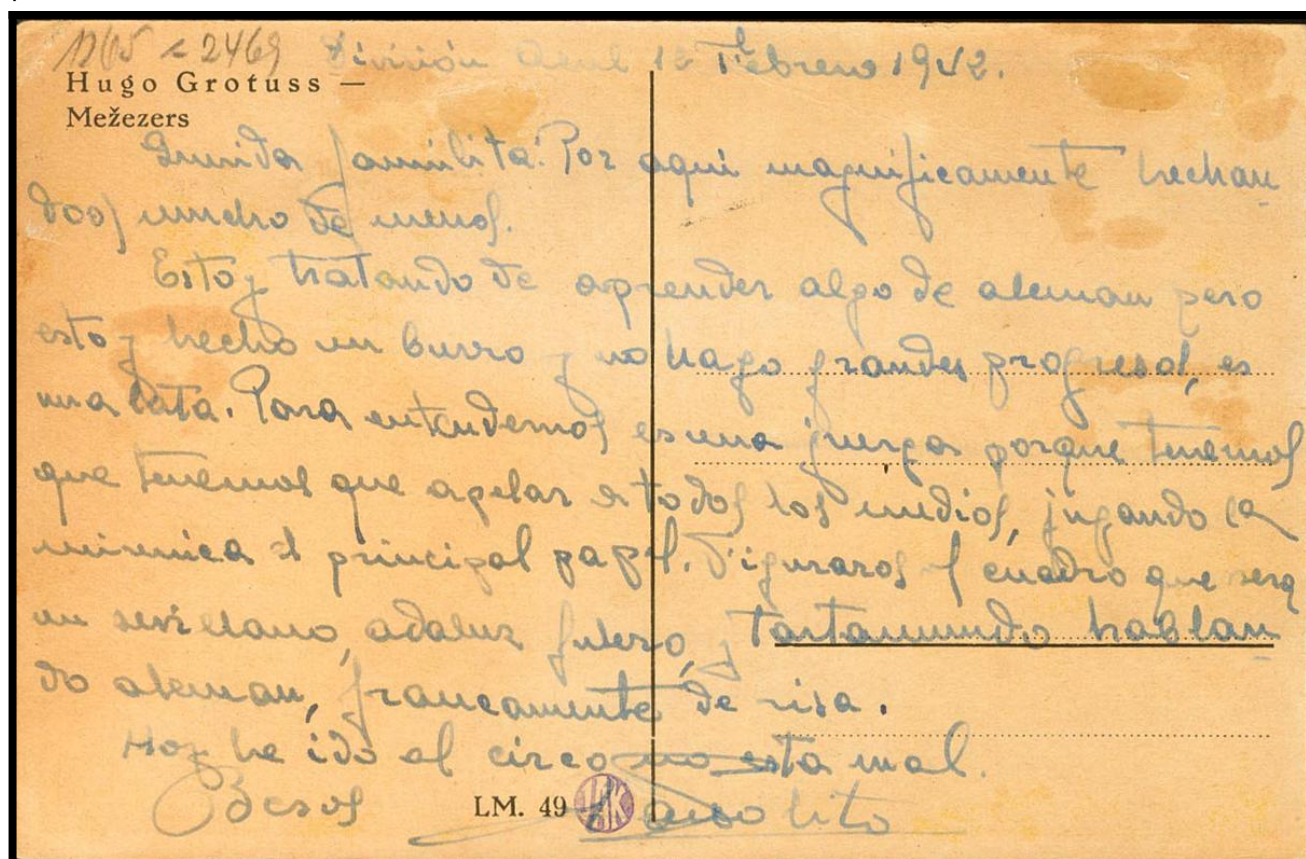 2469 División Azul 12 Febrero 1942.
Hugo Grotuss —
Mežezers
familita: Por aqui magnificamente hechan
doos mucho de menos.
Estoy tratando de aprender algo de aleman pero
estoy hecho un burro y no hago grandes progresos, es
una lata. Para entendernos es una juerga porque tenemos
que tenemos que apelar a todos los medios, jugando la
mimica el principal papel. Figuraros el cuadro que sera
un sevillano, adaluz fulero, y tartamundo hablan
do aleman, francamente de risa.
Hoy he ido al circo no esta mal.
Besos
LM. 49